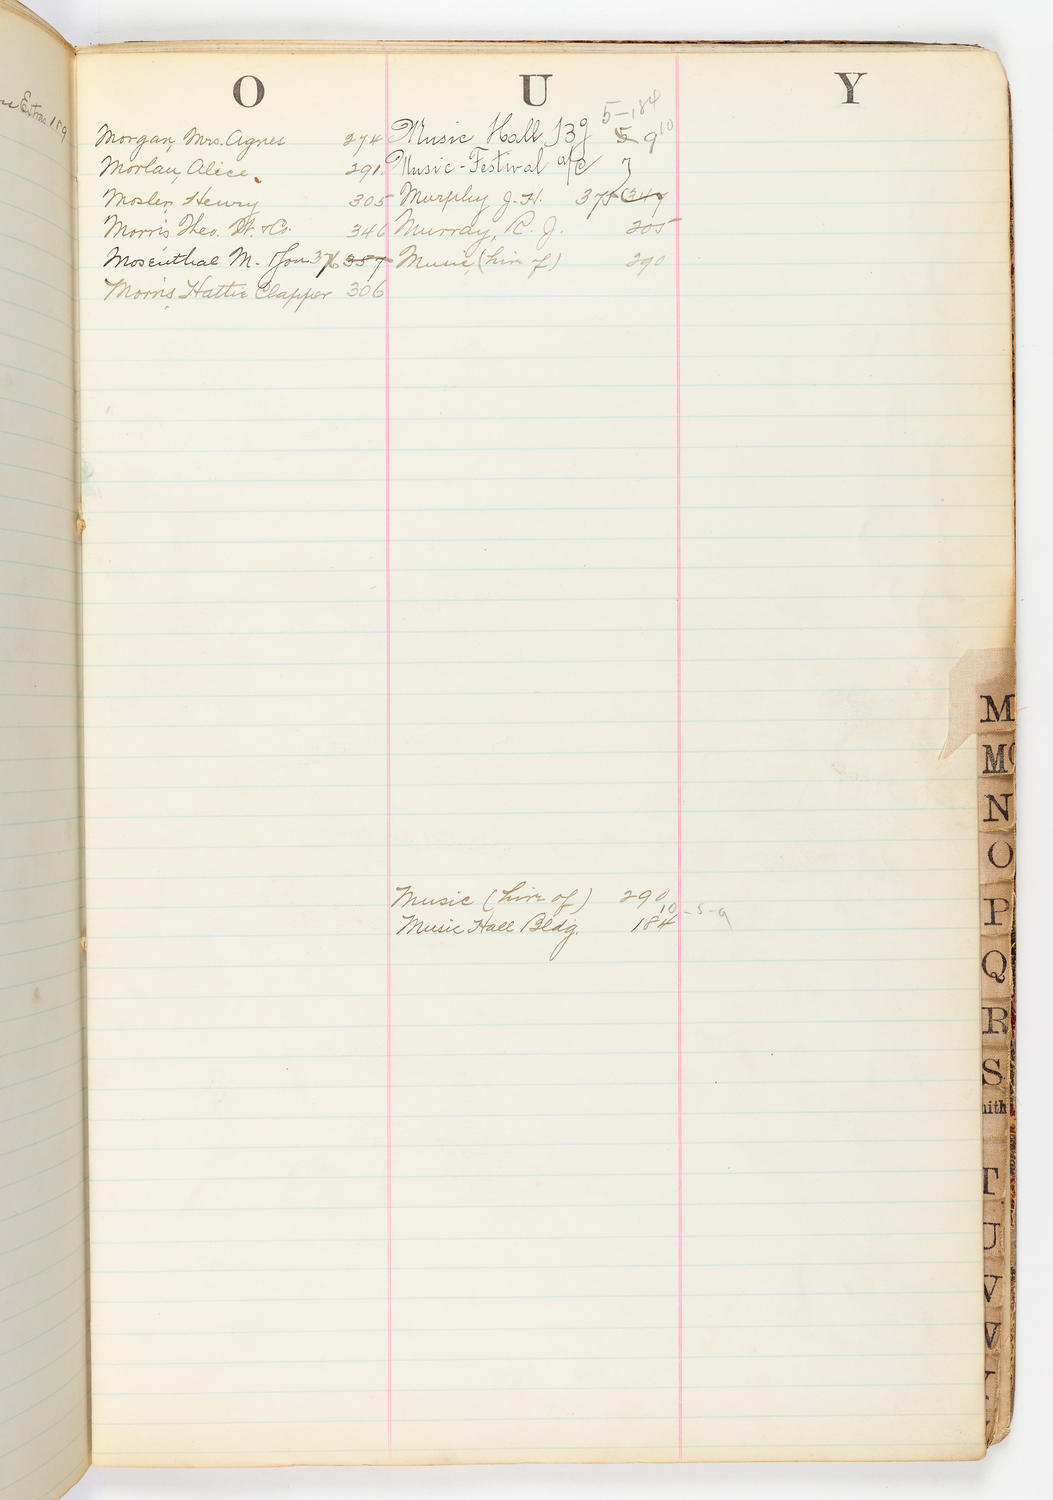 Extras 189
O
Morgan, Mrs. Agnes 274
Morlau, Alice. 291
Mosler, Henry 305
Morris Theo. W. & Co. 346
Mosenthal M. 376 357
Morris, Hattie Clapper 306
U
5-184
Music Hall 5 9 10
Music-Festival a/c 7
Murphy J. H. 375 347
Murray, R. J. 205
Music (hire of) 290
Music (hire of) 290
Music Hall Bldg. 184 10-5-9
Y
M
Mc
N
O
P
Q
R
S
mith
T
U
V
W